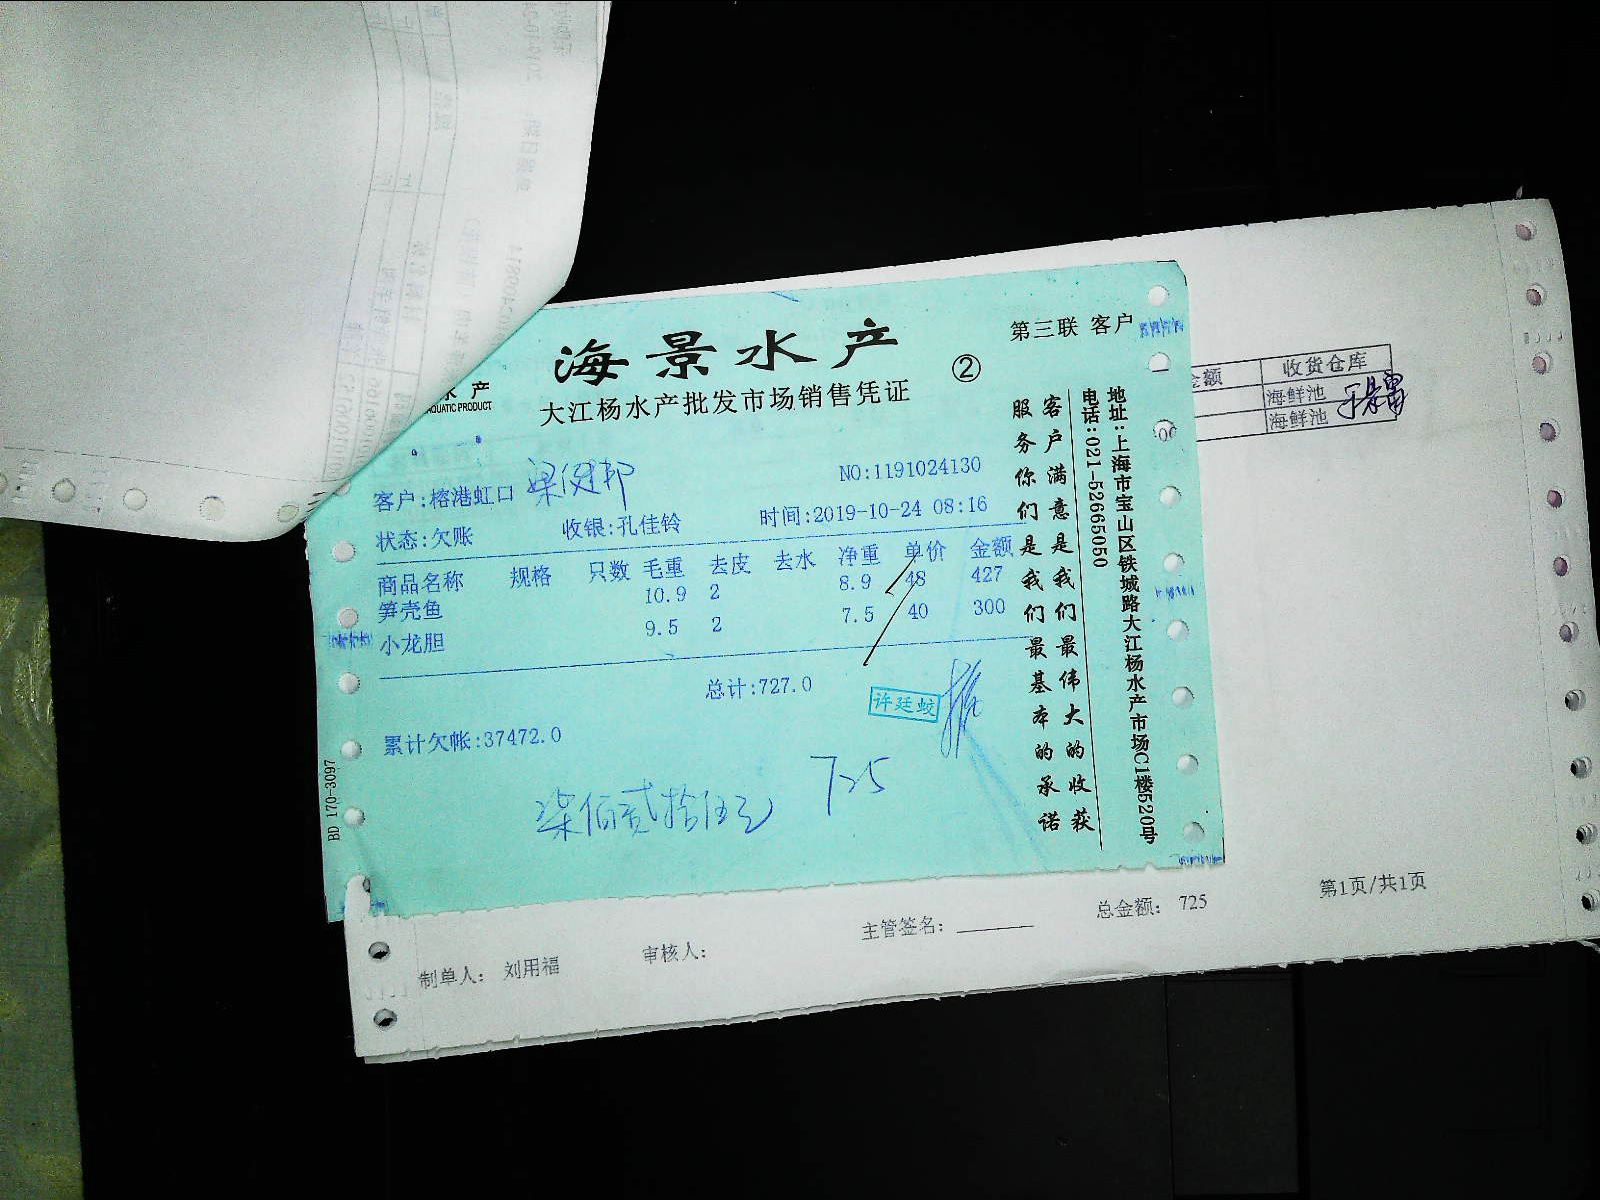 海景水产
水产
AQUATIC PRODUCT
大江杨水产批发市场销售凭证
②
第三联 客户
客户:榕港虹口
NO:1191024130
状态:欠账 收银:孔佳铃 时间:2019-10-24 08:16
商品名称 规格 只数 毛重 去皮 去水 净重 单价 金额
笋壳鱼 10.9 2 8.9 48 427
小龙胆 9.5 2 7.5 40 300
总计:727.0
许廷蛟
累计欠帐:37472.0
柒佰贰拾伍元 725
BD 170-3097
客户满意是我们最伟大的收获
服务你们是我们最基本的承诺
地址:上海市宝山区铁城路大江杨水产市场C1楼520号
电话:021-52665050
金额 收货仓库
海鲜池
海鲜池
制单人: 刘用福 审核人: 主管签名: 总金额: 725 第1页/共1页